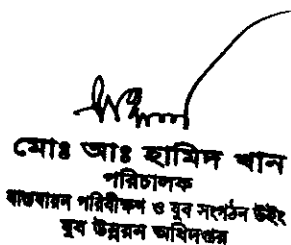 মোঃ আঃ হামিদ খান
পরিচালক
বাস্তবায়ন পরিবীক্ষণ ও যুব সংগঠন উইং
যুব উন্নয়ন অধিদপ্তর